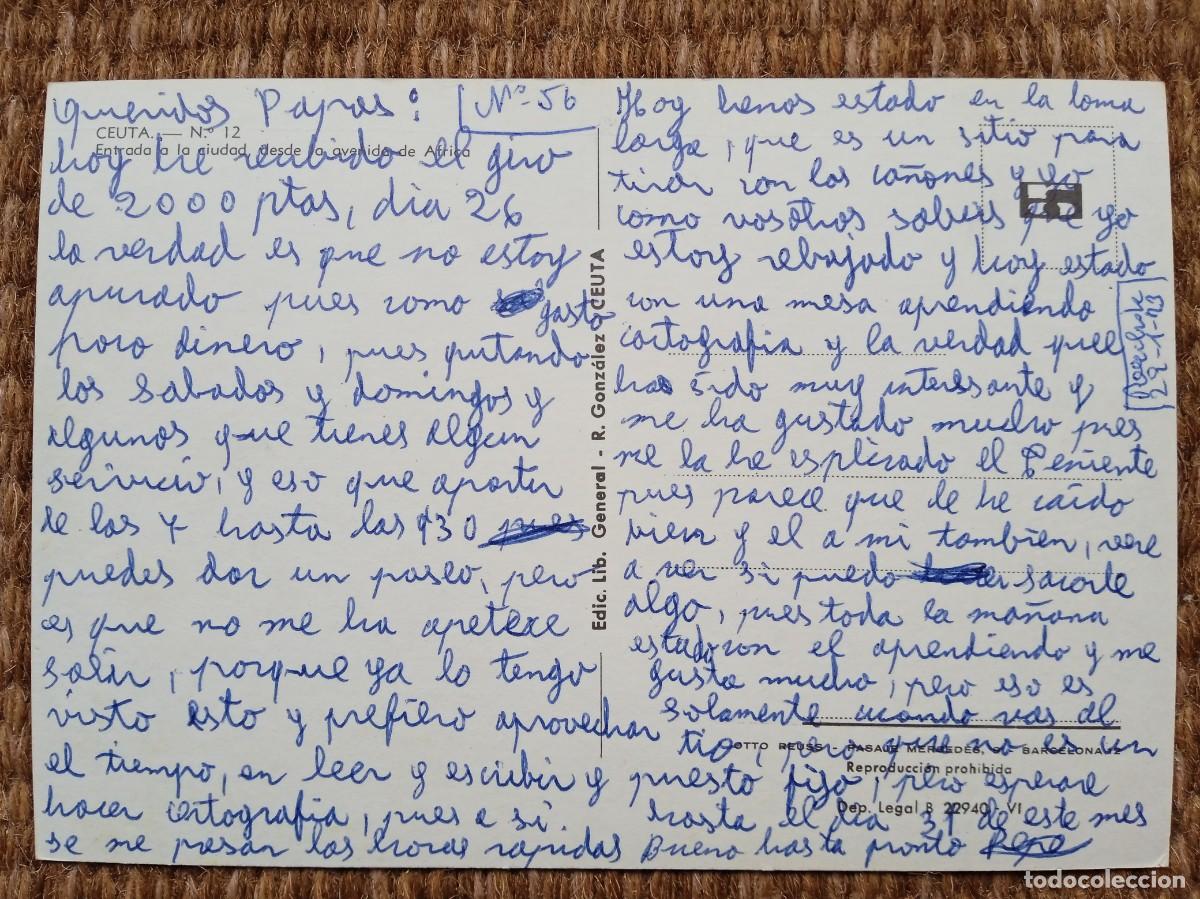 Queridos Papas: Nº-56
CEUTA. — N.º 12
Entrada a la ciudad, desde la avenida de Africa
hoy he recibido el giro
de 2000 ptas, dia 26
la verdad es que no estoy
apurado pues como gasto
poco dinero, pues quitando
los sabados y domingos y
algunos que tienes algun
servicio, y eso que apartir
de las 7 hasta las 930 pues
puedes dar un paseo, pero
es que no me ha apetexe
salir, porque ya lo tengo
visto esto y prefiero aprovechar
el tiempo, en leer y escribir y
hacer cartografia, pues a si
se me pasan las horas rapidas
Edic. Lib. General - R. González - CEUTA
Hoy hemos estado en la loma
larga, que es un sitio para
tirar con los cañones y yo
como vosotros sabeis que yo
estoy rebajado y hoy estado
con una mesa aprendiendo
cartografia y la verdad que
ha sido muy interesante y
me ha gustado mucho pues
me la he esplicado el Teniente
pues parece que le he caido
bien y el a mi tambien, vere
a ver si puedo sacarle
algo, pues toda la mañana
estado con el aprendiendo y me
gusta mucho, pero eso es
solamente cuando vas al
tiro, pero que no es un
OTTO REUSS - PASAJE MERCEDES, BARCELONA
Reproducción prohibida
puesto fijo, pero esperare
Dep. Legal B 22940 - VI
hasta el dia 31 de este mes
Bueno hasta pronto Pepe
todocoleccion